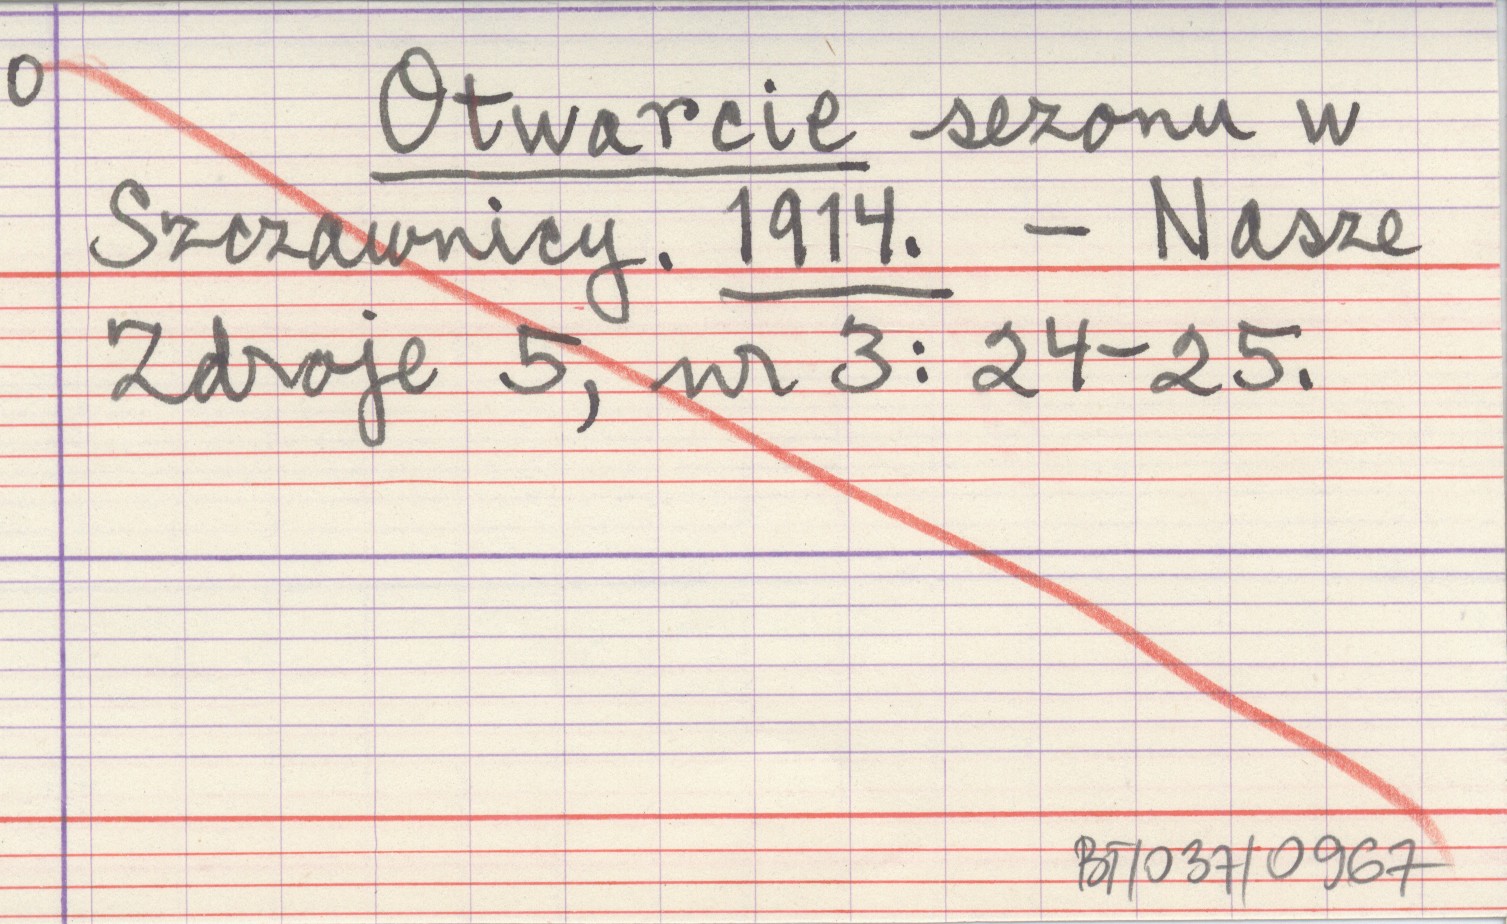 O
Otwarcie sezonu w
Szczawnicy. 1914. – Nasze
Zdroje 5, nr 3: 24-25.
BT/037/0967